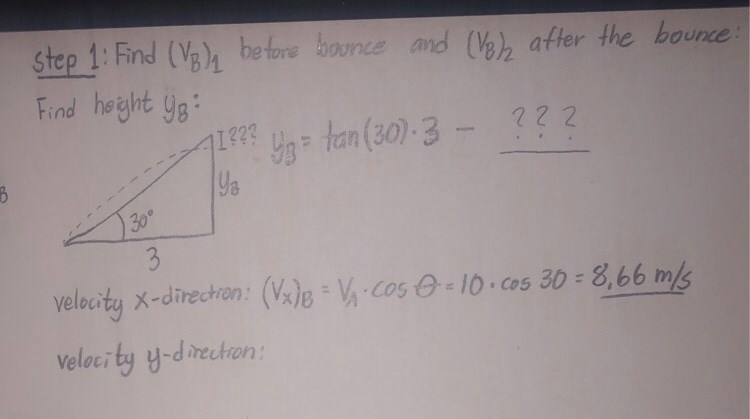 Step 1: Find (V_B)_1 before bounce and (V_B)_2 after the bounce:
Find height y_B:
I???
y_B = tan(30)·3 − ???
y_B
B
30°
3
velocity x-direction: (V_x)_B = V_A · cos θ = 10 · cos 30 = 8,66 m/s
velocity y-direction: